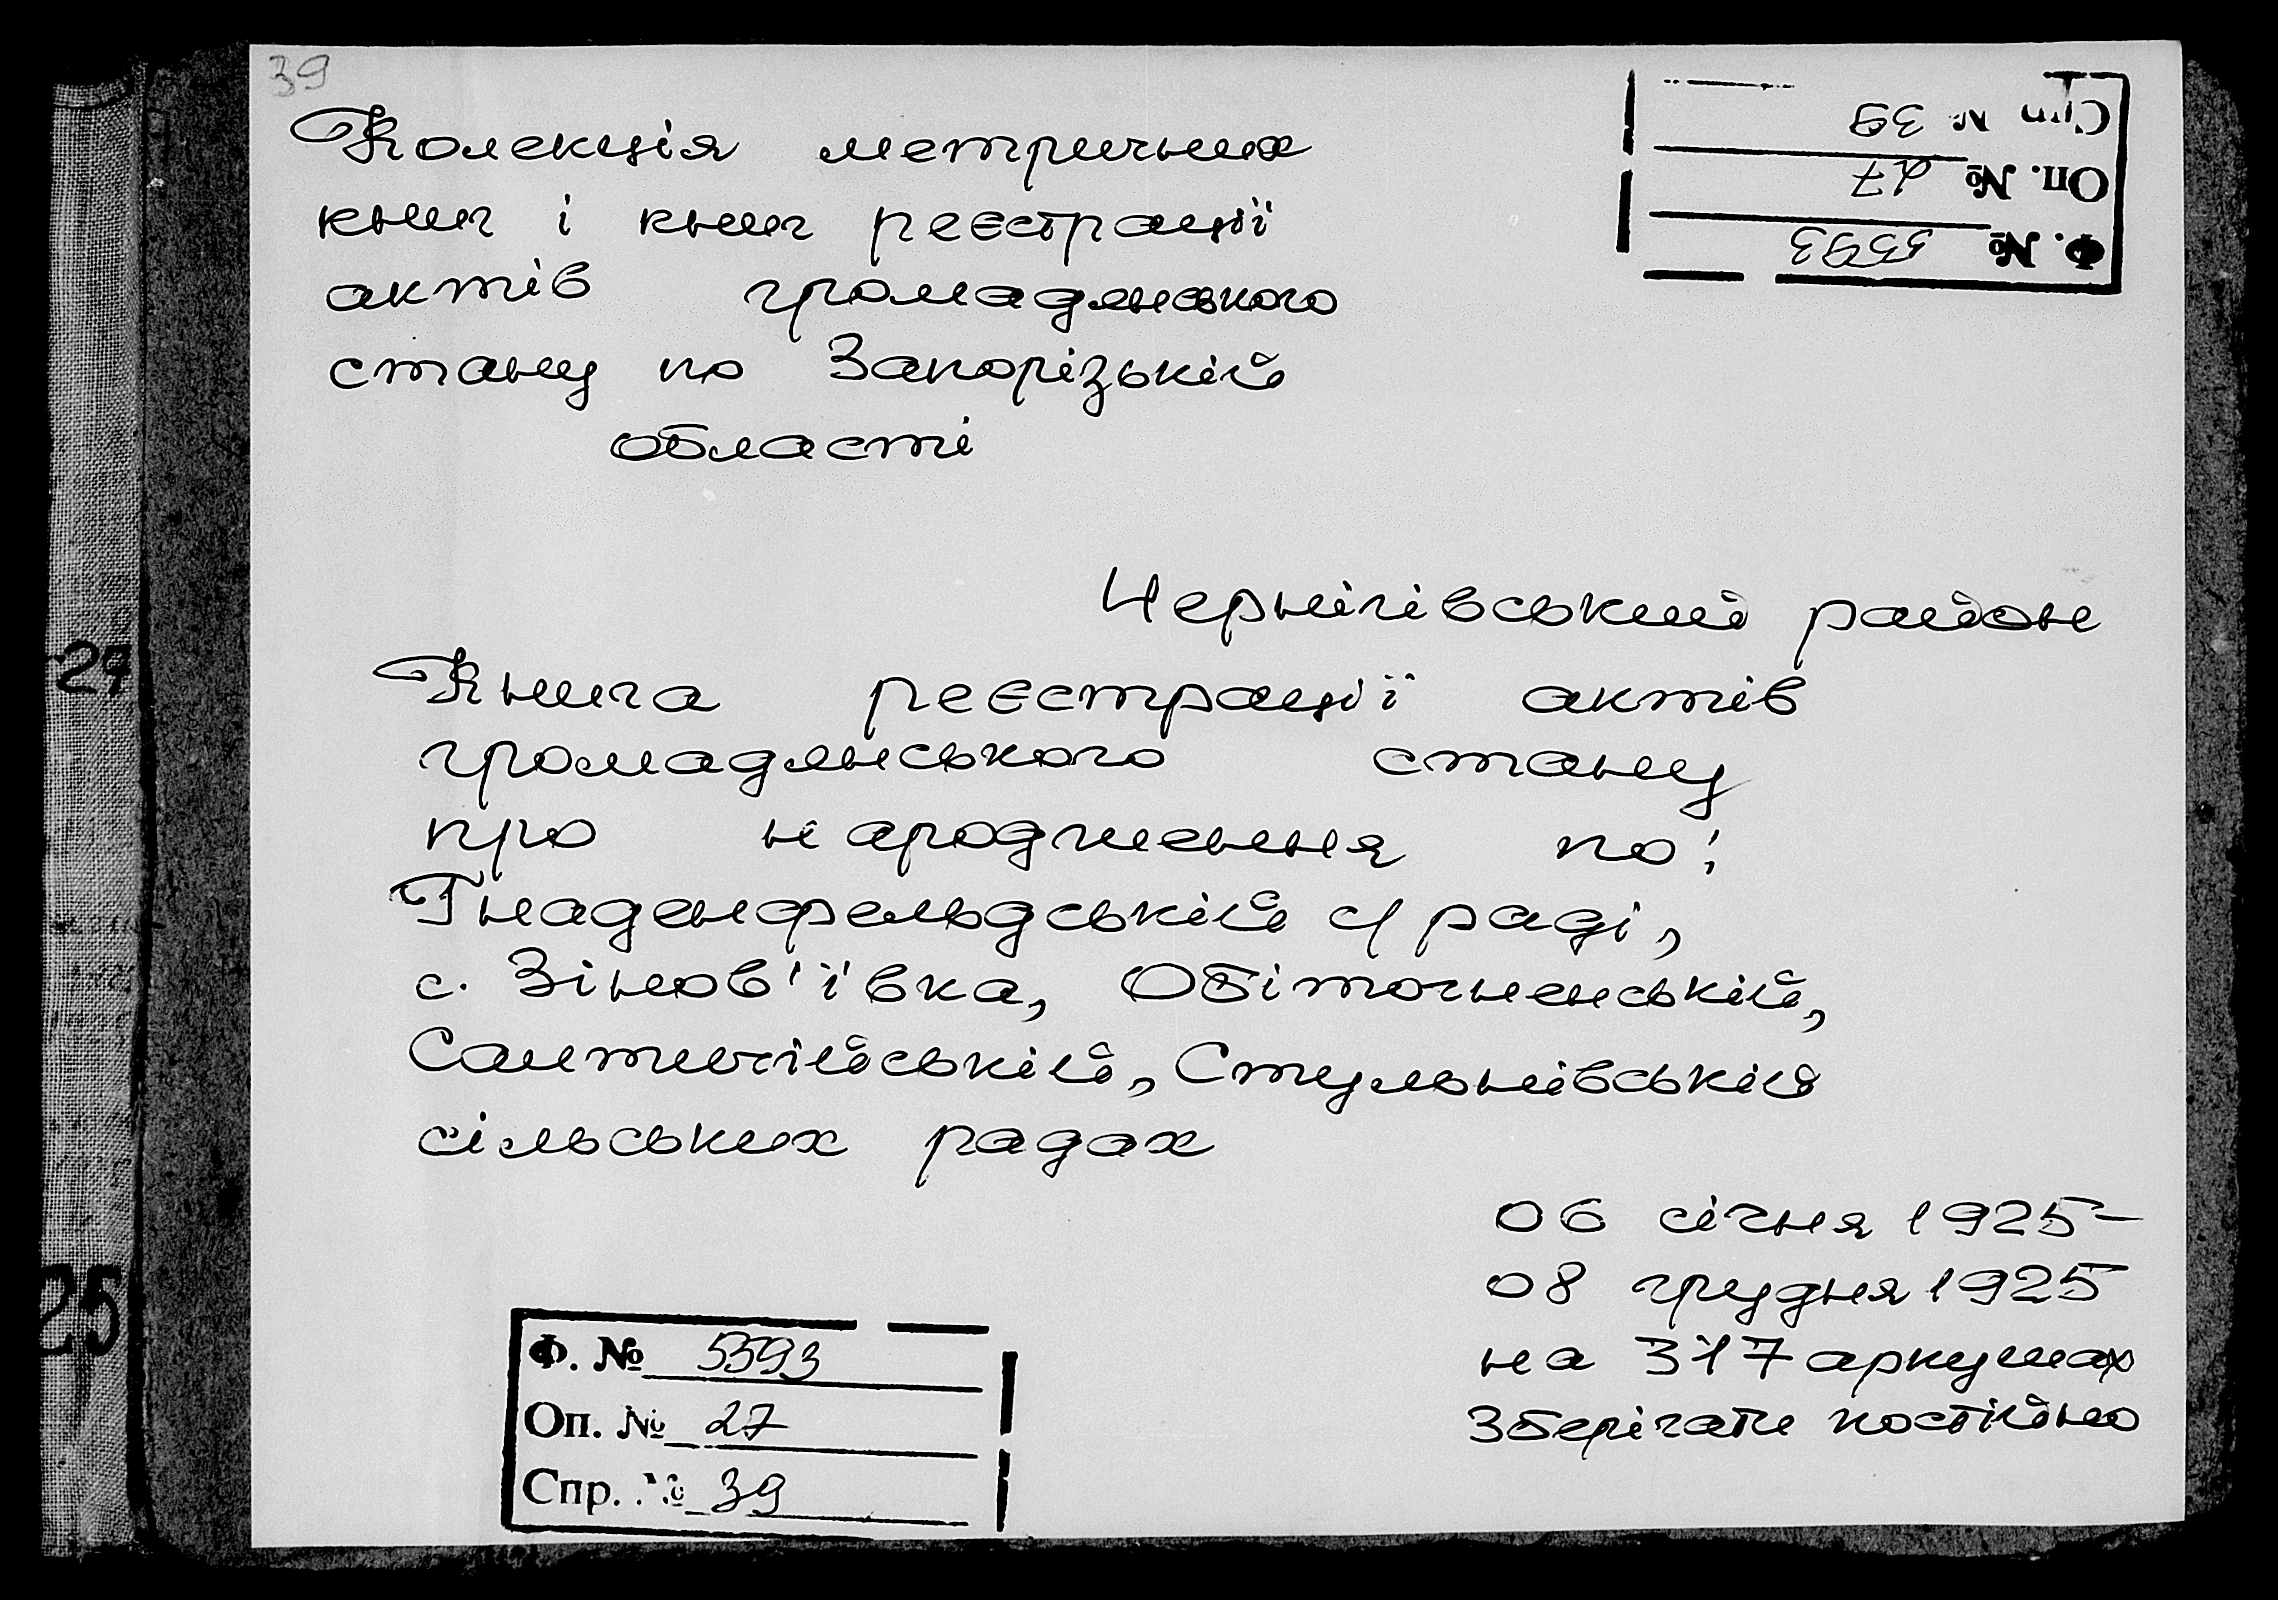 39
Колекція метричних
книг і книг реєстрації
актів громадянського
стану по Запорізькій
області
Спр № 39
Оп. № 27
Ф. № 5593
Чернігівський район
Книга реєстрації актів
громадянського стану
про народження по:
Гнаденфельдській с/раді,
с. Зінов'ївка, Обіточненській,
Стульнівській
сільських радах
06 січня 1925–
08 грудня 1925
на 317 аркушах
Зберігати постійно
Ф. № 5593
Оп. № 27
Спр. № 39
27
25